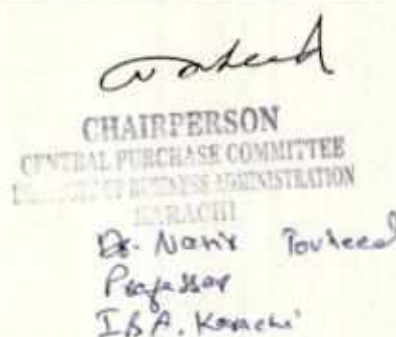 CHAIRPERSON
CENTRAL PURCHASE COMMITTEE
INSTITUTE OF BUSINESS ADMINISTRATION
KARACHI
Dr. Nasir Touheed
Professor
IBA, Karachi